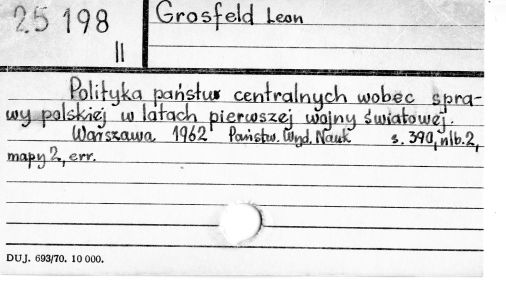 25198
II
Grosfeld Leon
Polityka państw centralnych wobec spra-
wy polskiej w latach pierwszej wojny światowej.
Warszawa 1962 Państw. Wyd. Nauk s. 390, nlb. 2,
mapy 2, err.
DUJ. 693/70. 10 000.